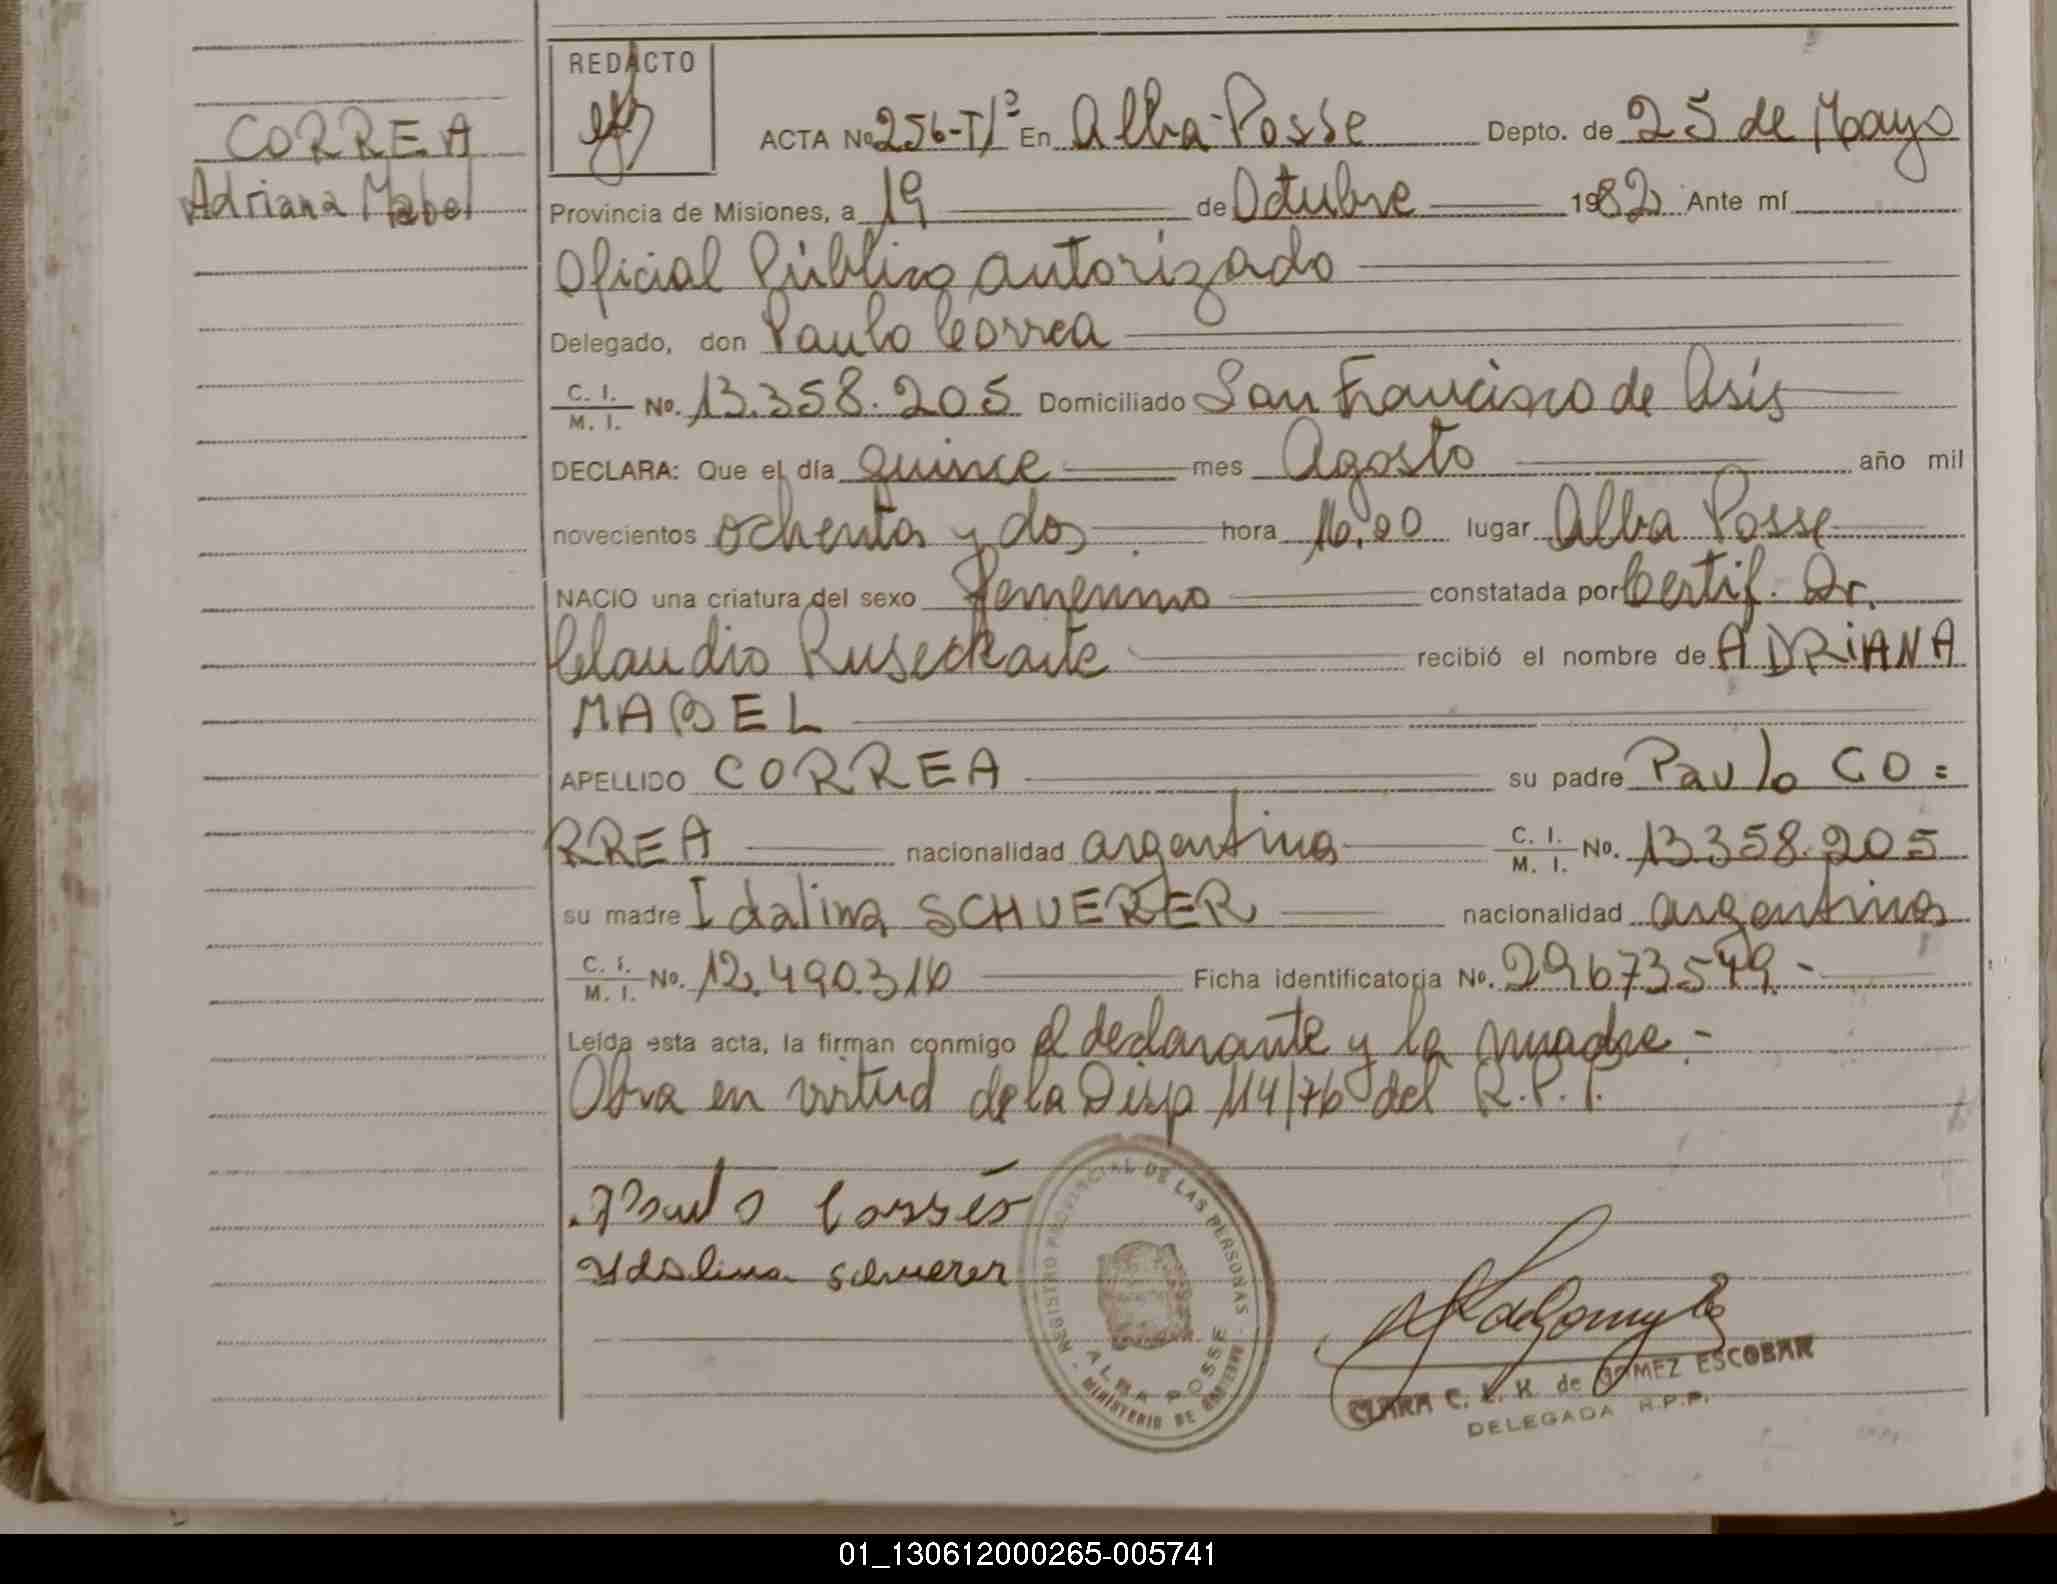 CORREA
Adriana Mabel
REDACTO
ACTA No 256-T/1º En Alba-Posse Depto. de 25 de Mayo
Provincia de Misiones, a 19 de Octubre 1982 Ante mí
Oficial Público autorizado
Delegado, don Paulo Correa
C. I. / M. I. No. 13.358.205 Domiciliado San Francisco de Asís
DECLARA: Que el día quince mes Agosto año mil
novecientos ochenta y dos hora lugar Alba Posse
NACIO una criatura del sexo femenino constatada por Certif. Dr.
Claudio recibió el nombre de ADRiANA
MABEL
APELLIDO CORREA su padre Paulo CO=
RREA nacionalidad argentina C. I. / M. I. No. 13358.205
su madre Idalina SCHUERER nacionalidad argentina
C. I. / M. I. No. 12.490.316 Ficha identificatoria No. 29673549.-
Leída esta acta, la firman conmigo el declarante y la madre.-
Obra en virtud de la Disp 114/76 del R.P.P.
Paulo Correa
Ydalina Schuerer
REGISTRO PROVINCIAL DE LAS PERSONAS
ALBA POSSE
MINISTERIO DE GOBIERNO
CLARA C. L. K. de GOMEZ ESCOBAR
DELEGADA R.P.P.
01_130612000265-005741